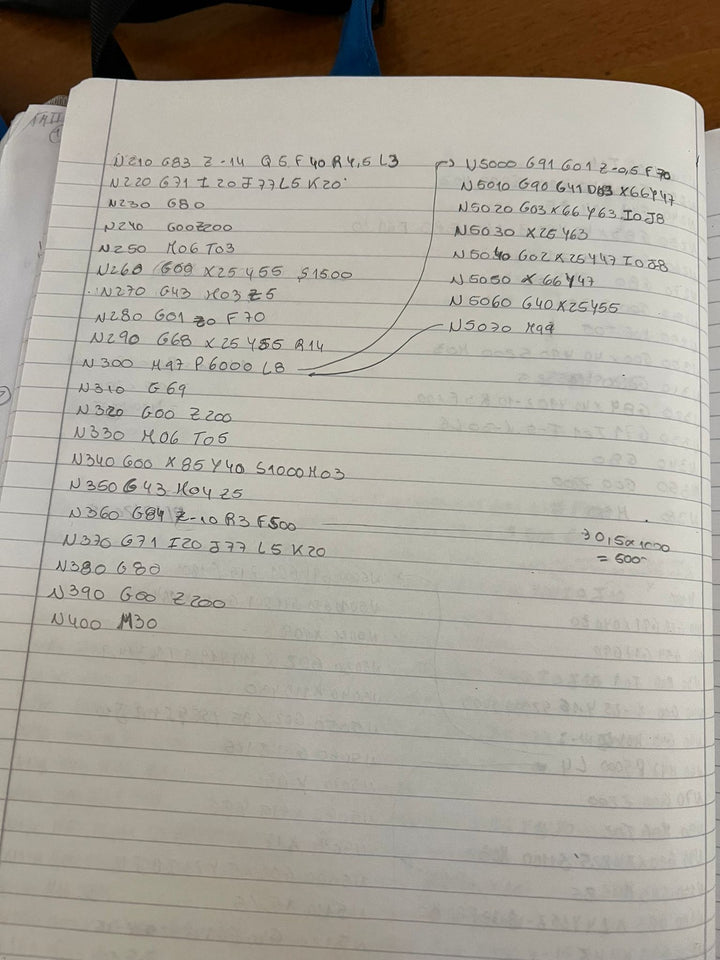 N210 G83 Z-14 Q5 F40 R4,5 L3
N220 G71 I20 J77 L5 K20
N230 G80
N240 G00 Z200
N250 M06 T03
N260 G00 X25 Y55 S1500
N270 G43 H03 Z5
N280 G01 Z0 F70
N290 G68 X25 Y55 R14
N300 M97 P6000 L8
N310 G69
N320 G00 Z200
N330 M06 T05
N340 G00 X85 Y40 S1000 M03
N350 G43 H04 Z5
N360 G84 Z-10 R3 F500
N370 G71 I20 J77 L5 K20
N380 G80
N390 G00 Z200
N400 M30
N5000 G91 G01 Z-0,5 F70
N5010 G90 G41 D03 X66 Y47
N5020 G03 X66 Y63 I0 J8
N5030 X25 Y63
N5040 G02 X25 Y47 I0 J8
N5050 X66 Y47
N5060 G40 X25 Y55
N5070 M99
0,5 x 1000
= 500